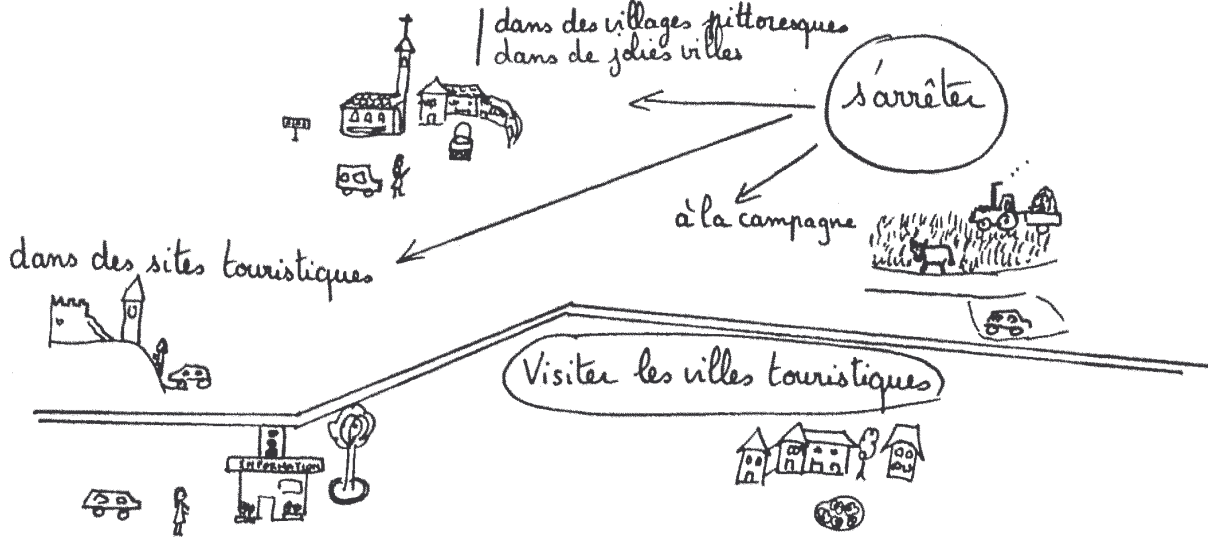 dans des villages pittoresques
dans de jolies villes
s'arrêter
à la campagne
dans des sites touristiques
Visiter les villes touristiques
INFORMATION